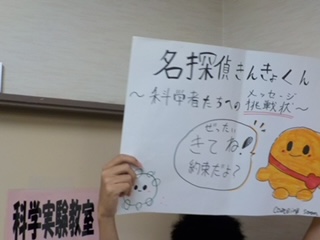 名探偵きんきょくん
メッセージ
～科学者たちへの挑戦状～
ぜったい
きてね!
約束だよ?
科学実験教室